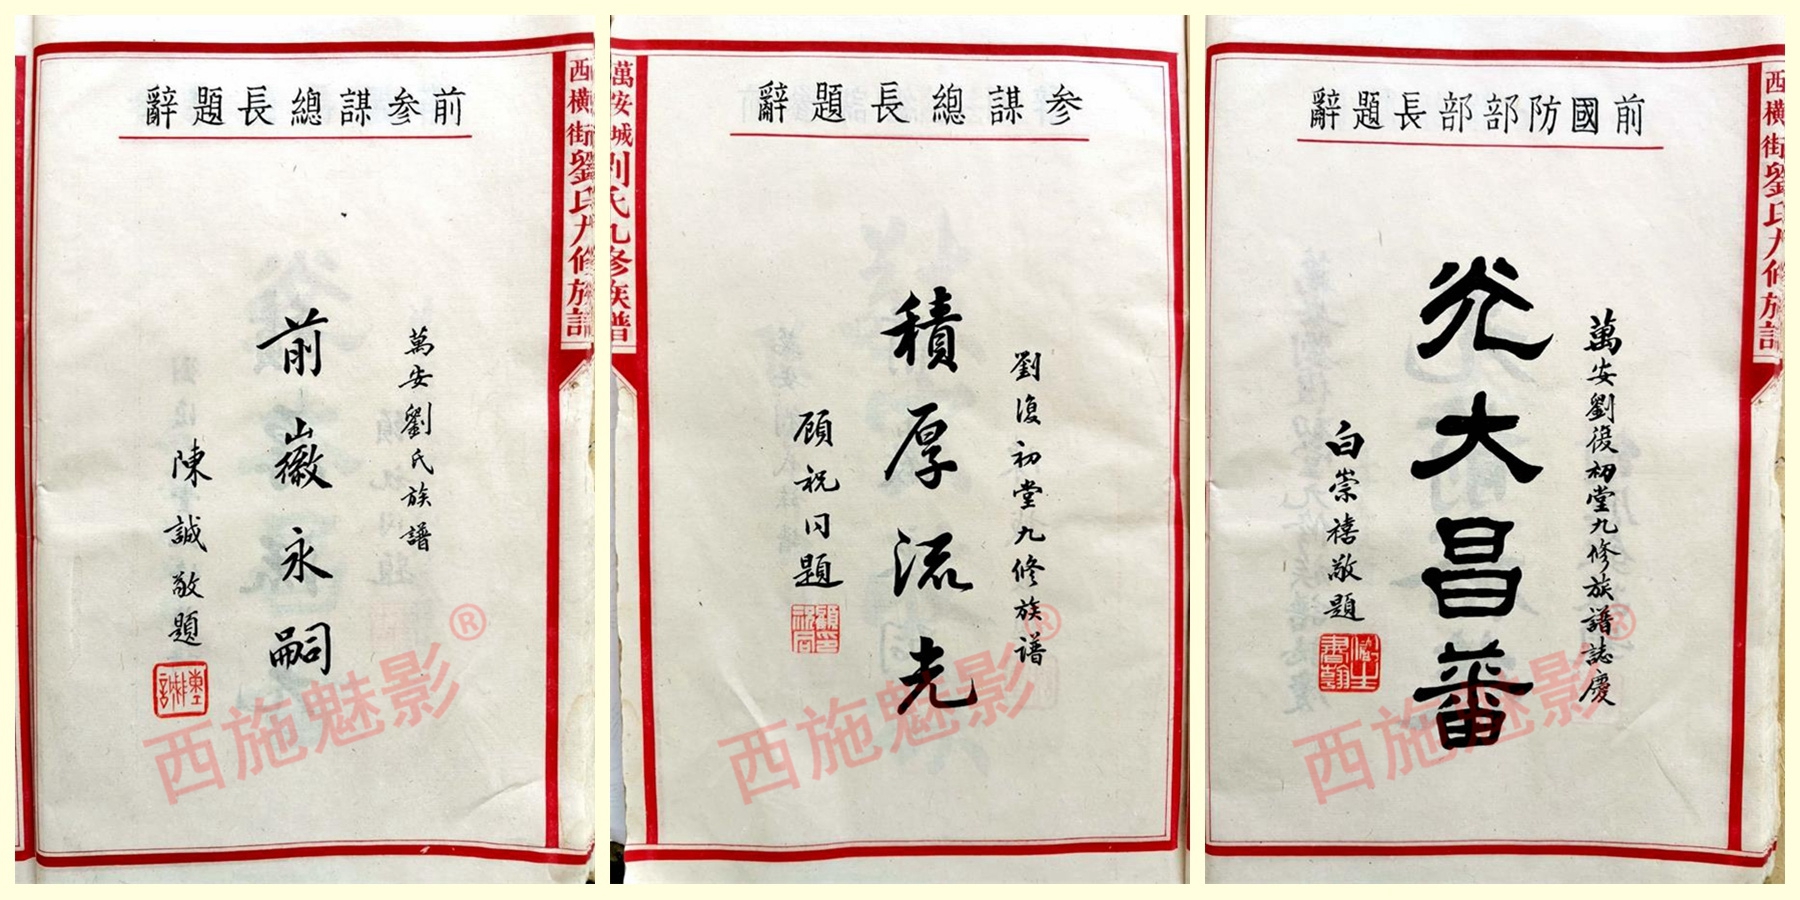 前参謀總長題辭
萬安劉氏族譜
前徽永嗣
陳誠敬題
西橫街劉氏九修族譜
西施魅影®
参謀總長題辭
劉復初堂九修族谱
積厚流光
顾祝同題
顧祝同印
萬安城劉氏九修族譜
西施魅影®
前國防部部長題辭
萬安劉復初堂九修族譜誌慶
光大昌蕃
白崇禧敬題
健生書翰
西橫街劉氏九修族譜
西施魅影®